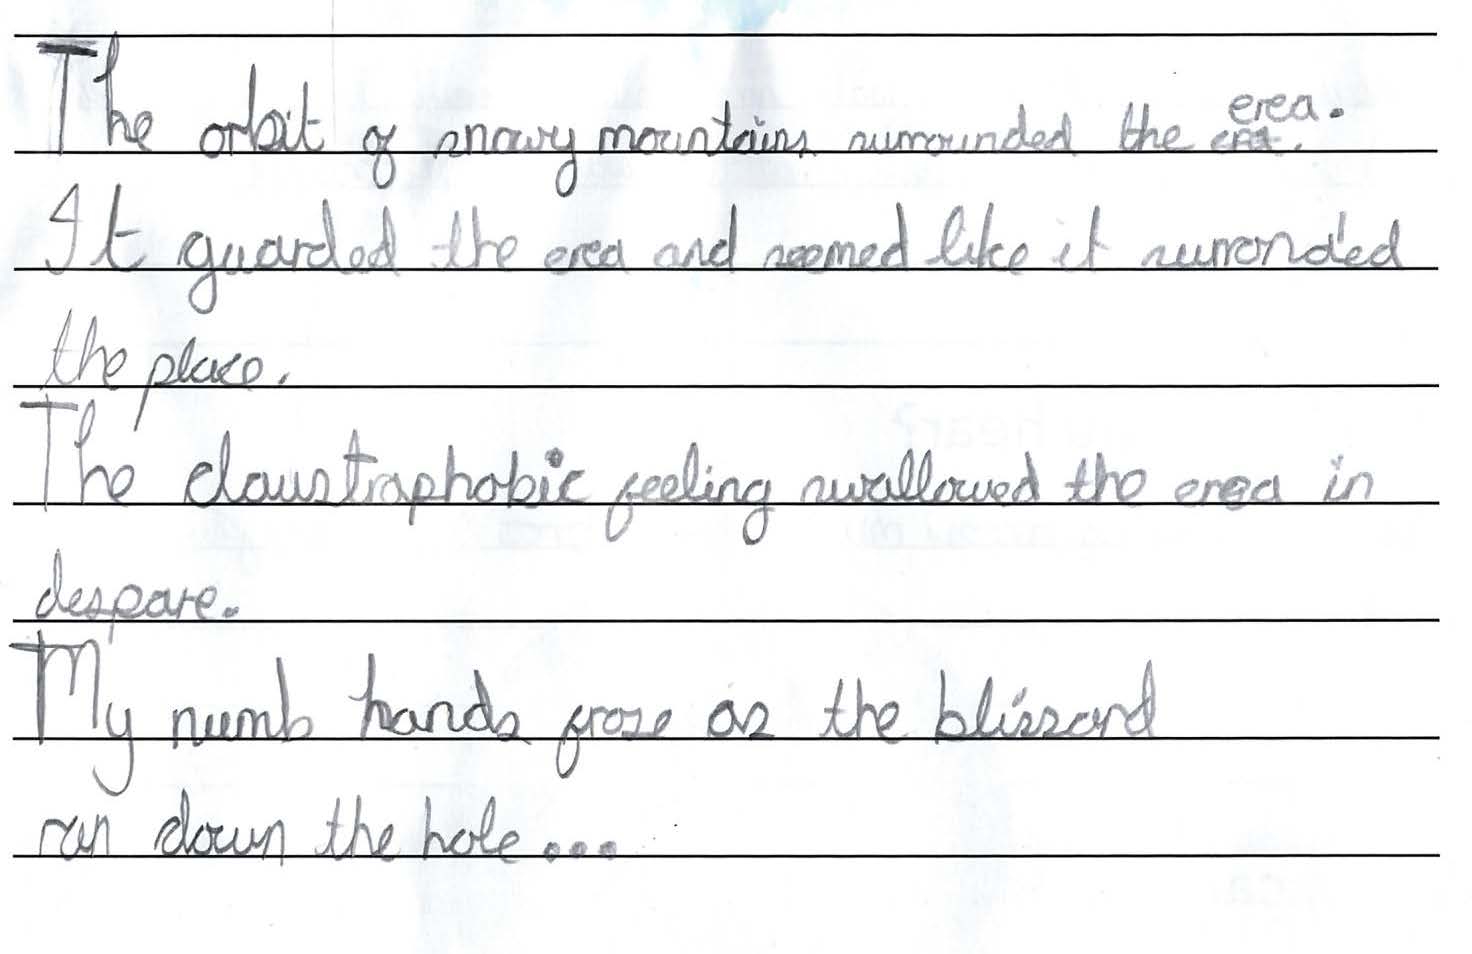 The orbit of snowy mountains surrounded the erea.
It guarded the erea and seemed like it surronded
the place.
The claustraphobic feeling swallowed the erea in
despare.
My numb hands froze as the blissard
ran down the hole...